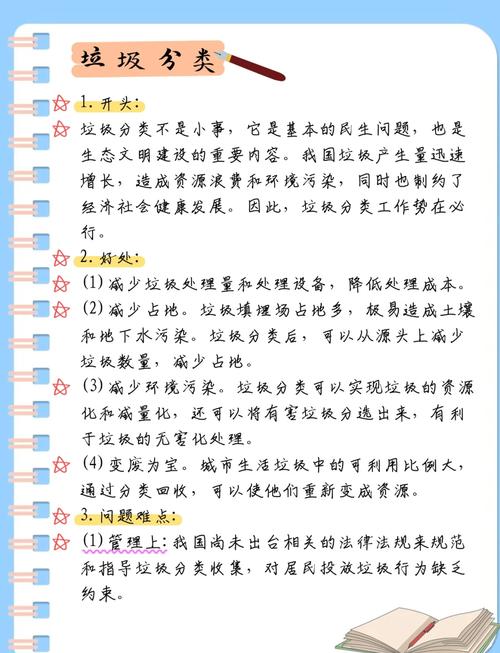 垃圾分类
1. 开头:
垃圾分类不是小事，它是基本的民生问题，也是
生态文明建设的重要内容。我国垃圾产生量迅速
增长，造成资源浪费和环境污染，同时也制约了
经济社会健康发展。因此，垃圾分类工作势在必
行。
2. 好处:
(1) 减少垃圾处理量和处理设备，降低处理成本。
(2) 减少占地。垃圾填埋场占地多，极易造成土壤
和地下水污染。垃圾分类后，可以从源头上减少
垃圾数量，减少占地。
(3) 减少环境污染。垃圾分类可以实现垃圾的资源
化和减量化，还可以将有害垃圾分选出来，有利
于垃圾的无害化处理。
(4) 变废为宝。城市生活垃圾中的可利用比例大，
通过分类回收，可以使他们重新变成资源。
3. 问题难点:
(1) 管理上: 我国尚未出台相关的法律法规来规范
和指导垃圾分类收集，对居民投放垃圾行为缺乏
约束。